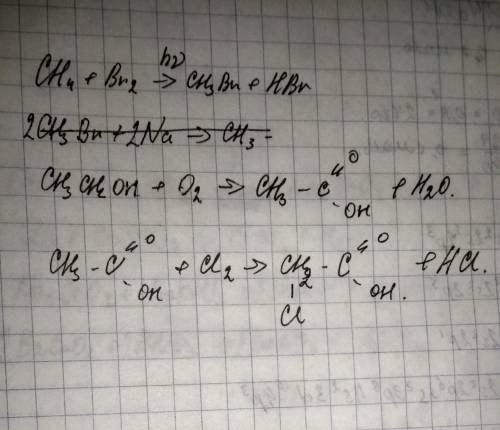 CH₄ + Br₂ →(hν) CH₃Br + HBr
2CH₃Br + 2Na → CH₃ -
CH₃CH₂OH + O₂ → CH₃ - C (=O) - OH + H₂O.
CH₃ - C (=O) - OH + Cl₂ → CH₂ (Cl) - C (=O) - OH. + HCl.